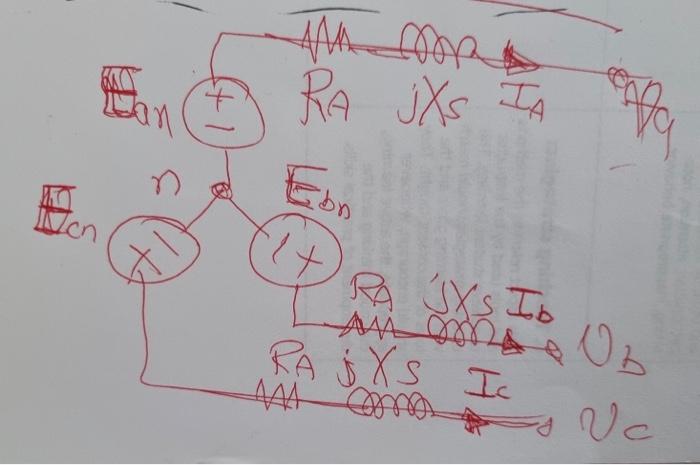 Ean + - RA jXs IA Va
n Ebn
Ecn + - - +
RA jXs Ib Vb
RA jXs Ic Vc